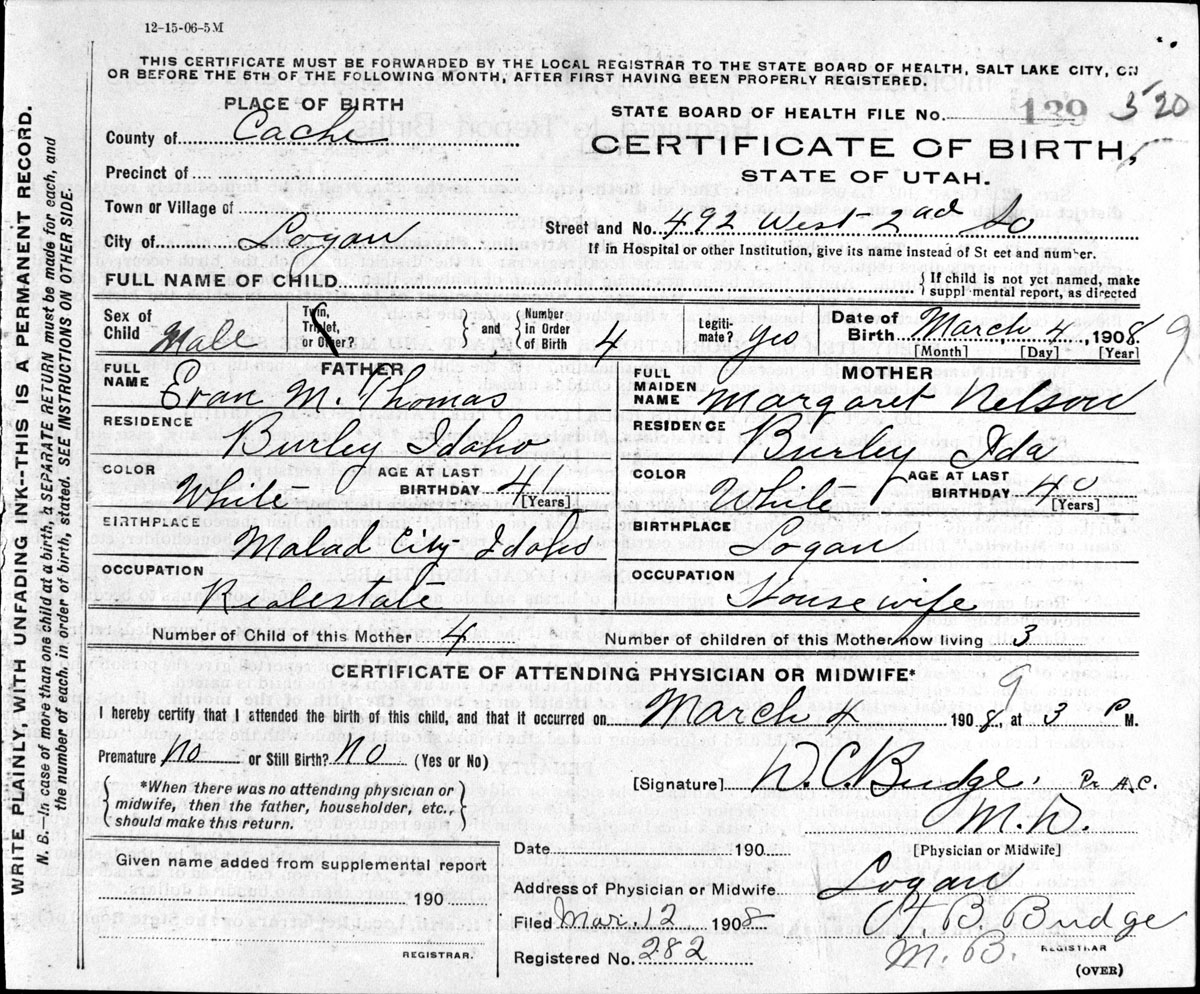 12-15-06-5M
THIS CERTIFICATE MUST BE FORWARDED BY THE LOCAL REGISTRAR TO THE STATE BOARD OF HEALTH, SALT LAKE CITY, ON
OR BEFORE THE 5TH OF THE FOLLOWING MONTH, AFTER FIRST HAVING BEEN PROPERLY REGISTERED.
WRITE PLAINLY, WITH UNFADING INK--THIS IS A PERMANENT RECORD.
N. B.--In case of more than one child at a birth, a SEPARATE RETURN must be made for each, and
the number of each, in order of birth, stated. SEE INSTRUCTIONS ON OTHER SIDE.
PLACE OF BIRTH
County of Cache
Precinct of
Town or Village of
City of Logan
STATE BOARD OF HEALTH FILE No. 139 520
CERTIFICATE OF BIRTH,
STATE OF UTAH.
Street and No. 492 West 2nd So
If in Hospital or other Institution, give its name instead of St eet and number.
FULL NAME OF CHILD
If child is not yet named, make
suppl mental report, as directed
Sex of Child Male
Twin, Triplet, or Other?
and
Number in Order of Birth 4
Legiti-mate? yes
Date of Birth March 4 1908 9
[Month] [Day] [Year]
FATHER
FULL NAME Evan M. Thomas
RESIDENCE Burley Idaho
COLOR White AGE AT LAST BIRTHDAY 41 [Years]
BIRTHPLACE Malad City Idaho
OCCUPATION Realestate
MOTHER
FULL MAIDEN NAME Margaret Nelson
RESIDENCE Burley Ida
COLOR White AGE AT LAST BIRTHDAY 40 [Years]
BIRTHPLACE Logan
OCCUPATION House wife
Number of Child of this Mother 4 Number of children of this Mother now living 3
CERTIFICATE OF ATTENDING PHYSICIAN OR MIDWIFE*
9
I hereby certify that I attended the birth of this child, and that it occurred on March 4 1908, at 3 P M.
Premature No or Still Birth? No (Yes or No)
*When there was no attending physician or
midwife, then the father, householder, etc.,
should make this return.
[Signature] D. C. Budge.
M.D.
[Physician or Midwife]
Given name added from supplemental report
190
REGISTRAR.
Date 190
Address of Physician or Midwife Logan
Filed Mar. 12 1908 Budge
Registered No. 282
REGISTRAR
(OVER)